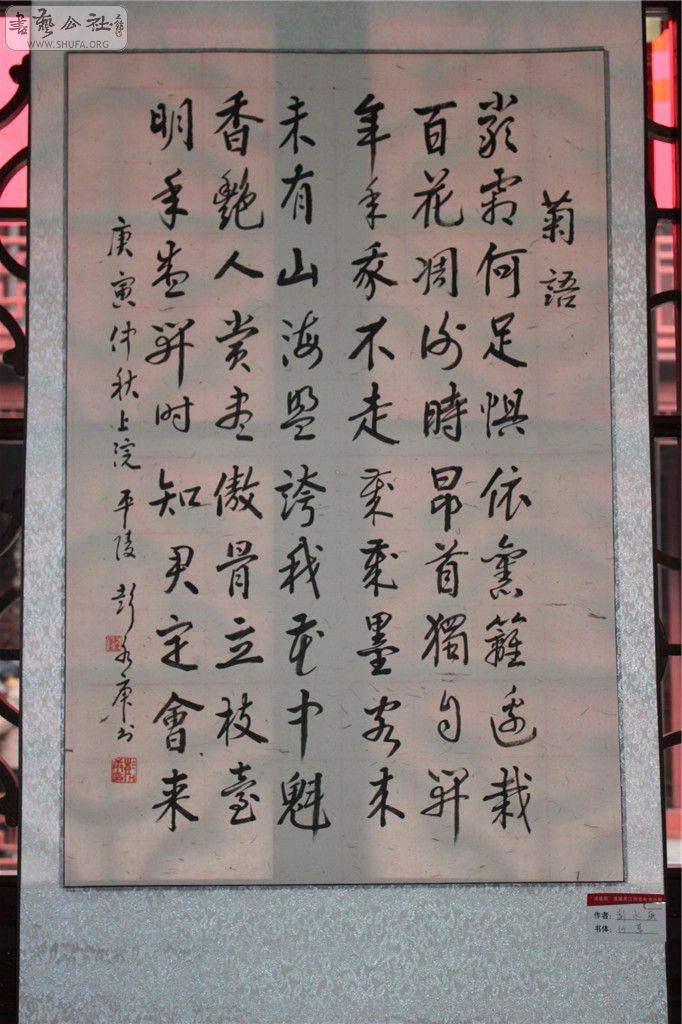 書藝公社
WWW.SHUFA.ORG
菊語
嚴霜何足惧依舊籬邊栽
百花凋谢時昂首獨自開
年年不走墨客来
未有山海盟誇我花中魁
香艷人赏盡傲骨立枝臺
明年盛開时知君定會来
庚寅仲秋上浣平陵彭永庚书
作者:彭永庚
书体:行草